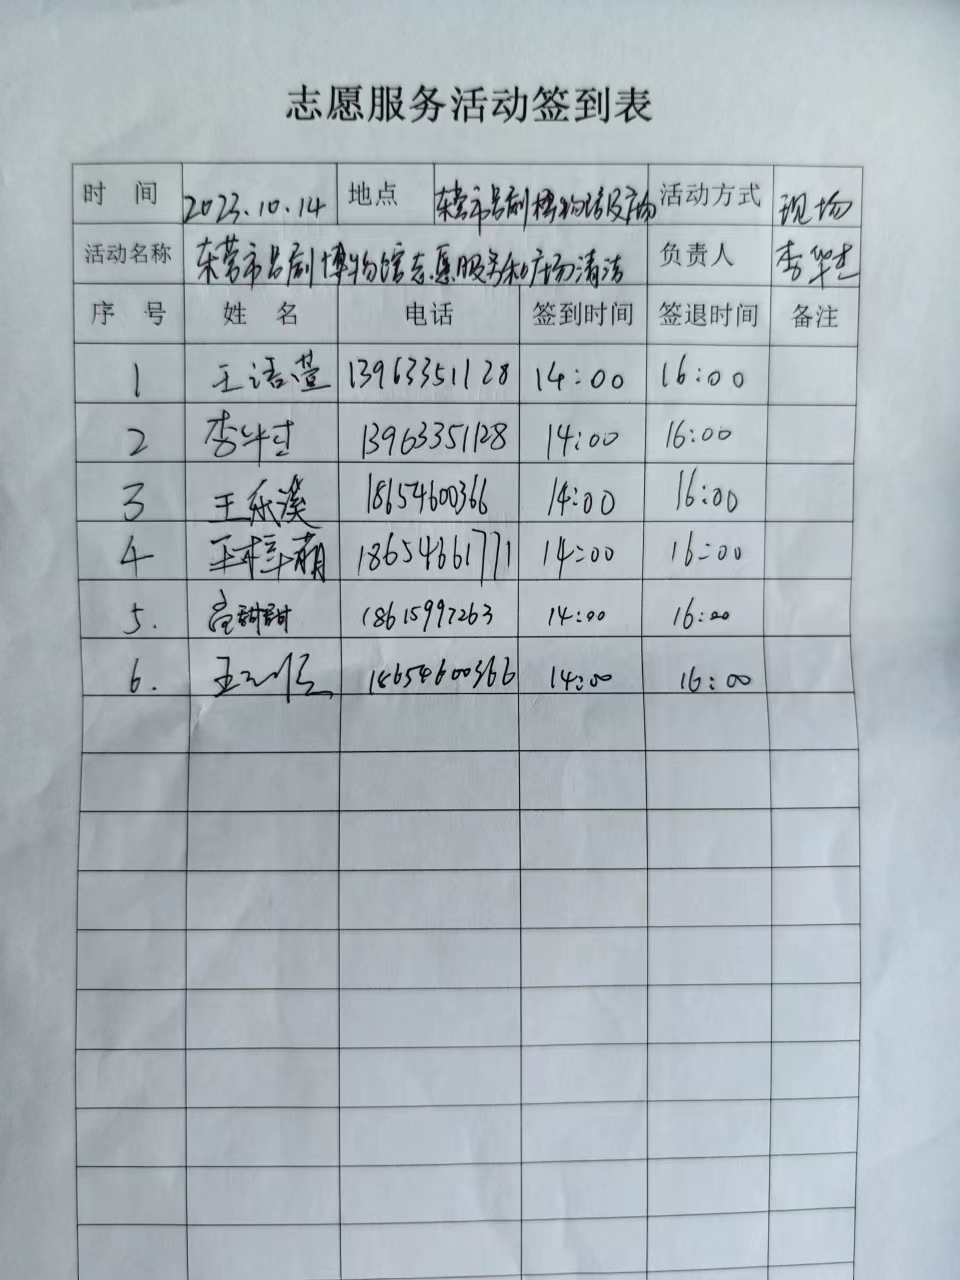 志愿服务活动签到表
时 间 2023.10.14 地点 东营市吕剧博物馆及广场 活动方式 现场
活动名称 东营市吕剧博物馆志愿服务和广场清洁 负责人 李华
序 号 姓 名 电话 签到时间 签退时间 备注
1 王语萱 13963351128 14:00 16:00
2 李华 13963351128 14:00 16:00
3 王乐溪 18654600366 14:00 16:00
4 王梓萌 18654661771 14:00 16:00
5. 甜甜 18615997263 14:00 16:00
6. 王 18654600366 14:00 16:00